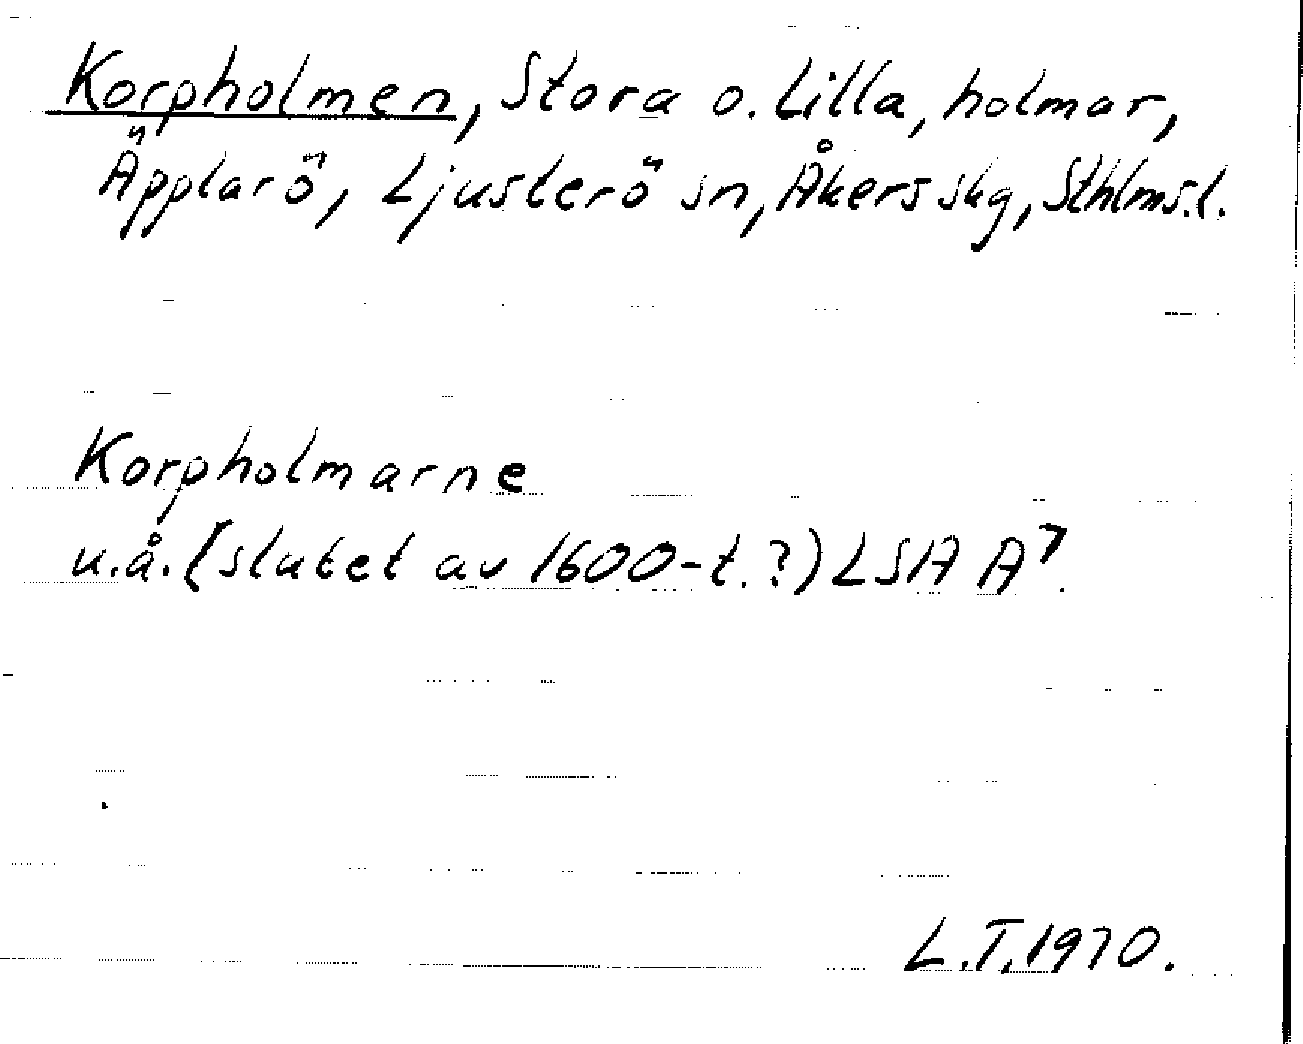 Korpholmen, Stora o. Lilla, holmar,
Äpplarö, Ljusterö sn, Åkers skg, Sthlms.l.
Korpholmarne
u.å. (slutet av 1600-t.?) LSA A7.
L.T. 1970.